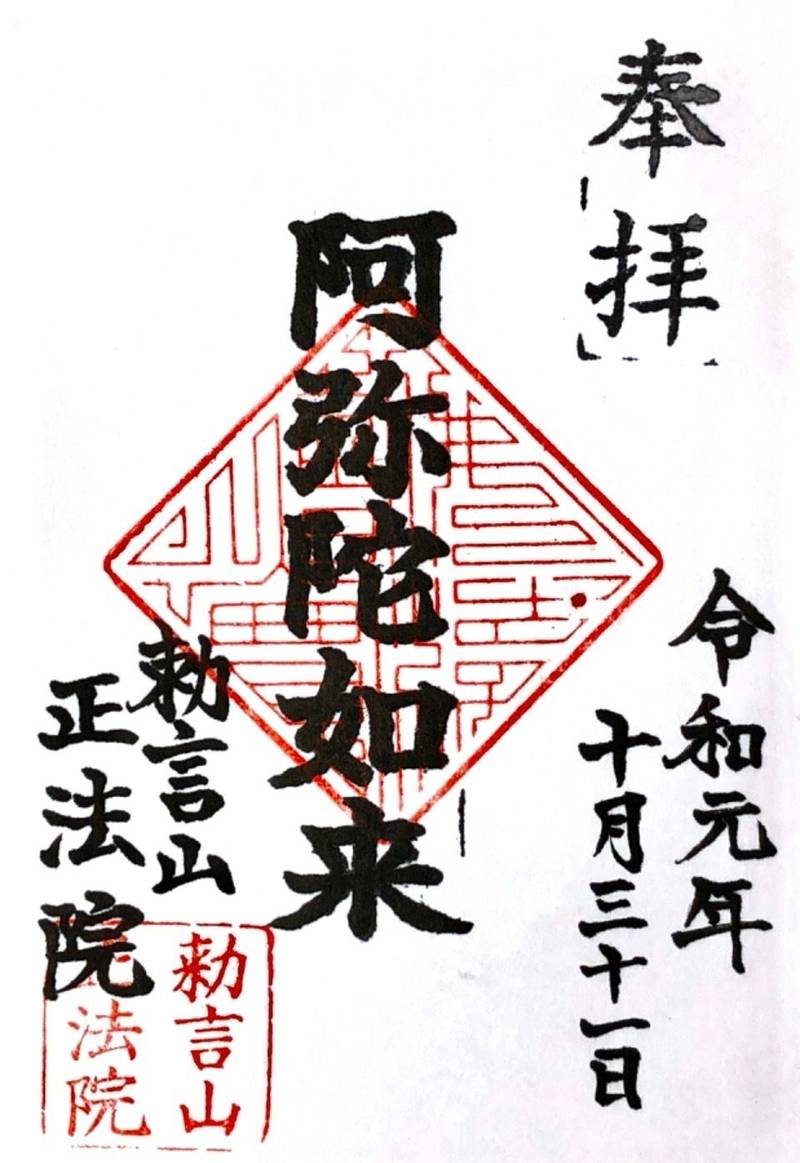 奉拝
令和元年
十月三十一日
阿弥陀如来
勅言山
正法院
勅言山
正法院